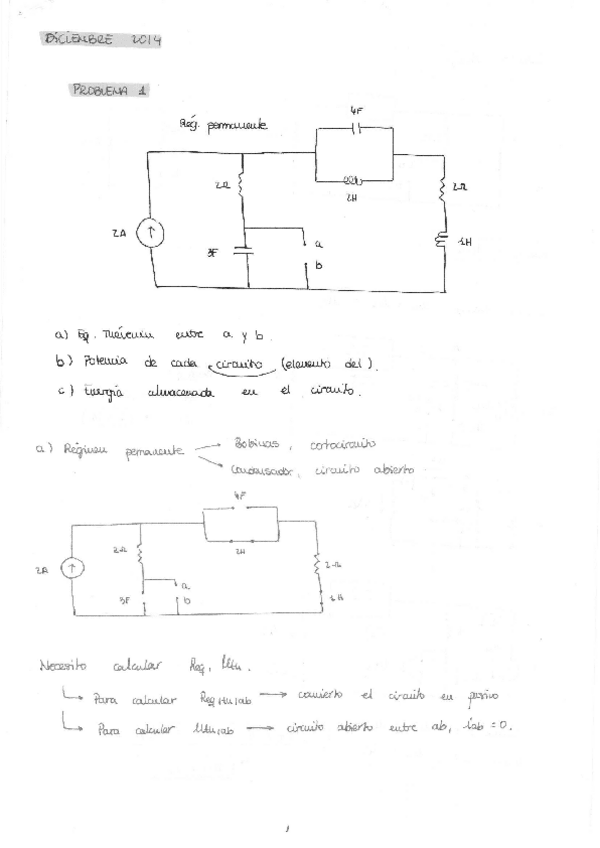 DICIEMBRE 2014
PROBLEMA 1
Rég. permanente
4F
2Ω
2H
2Ω
2A
3F
a
b
1H
a) Eq. Thévenin entre a y b.
b) Potencia de cada circuito (elemento del).
c) Energía almacenada en el circuito.
a) Régimen permanente → Bobinas, cortocircuito
→ Condensador, circuito abierto
4F
2Ω
2H
2Ω
2A
3F
a
b
1H
Necesito calcular Req, UTh.
→ Para calcular ReqTh|ab → convierto el circuito en pasivo
→ Para calcular UTh|ab → circuito abierto entre ab, iab = 0.
1